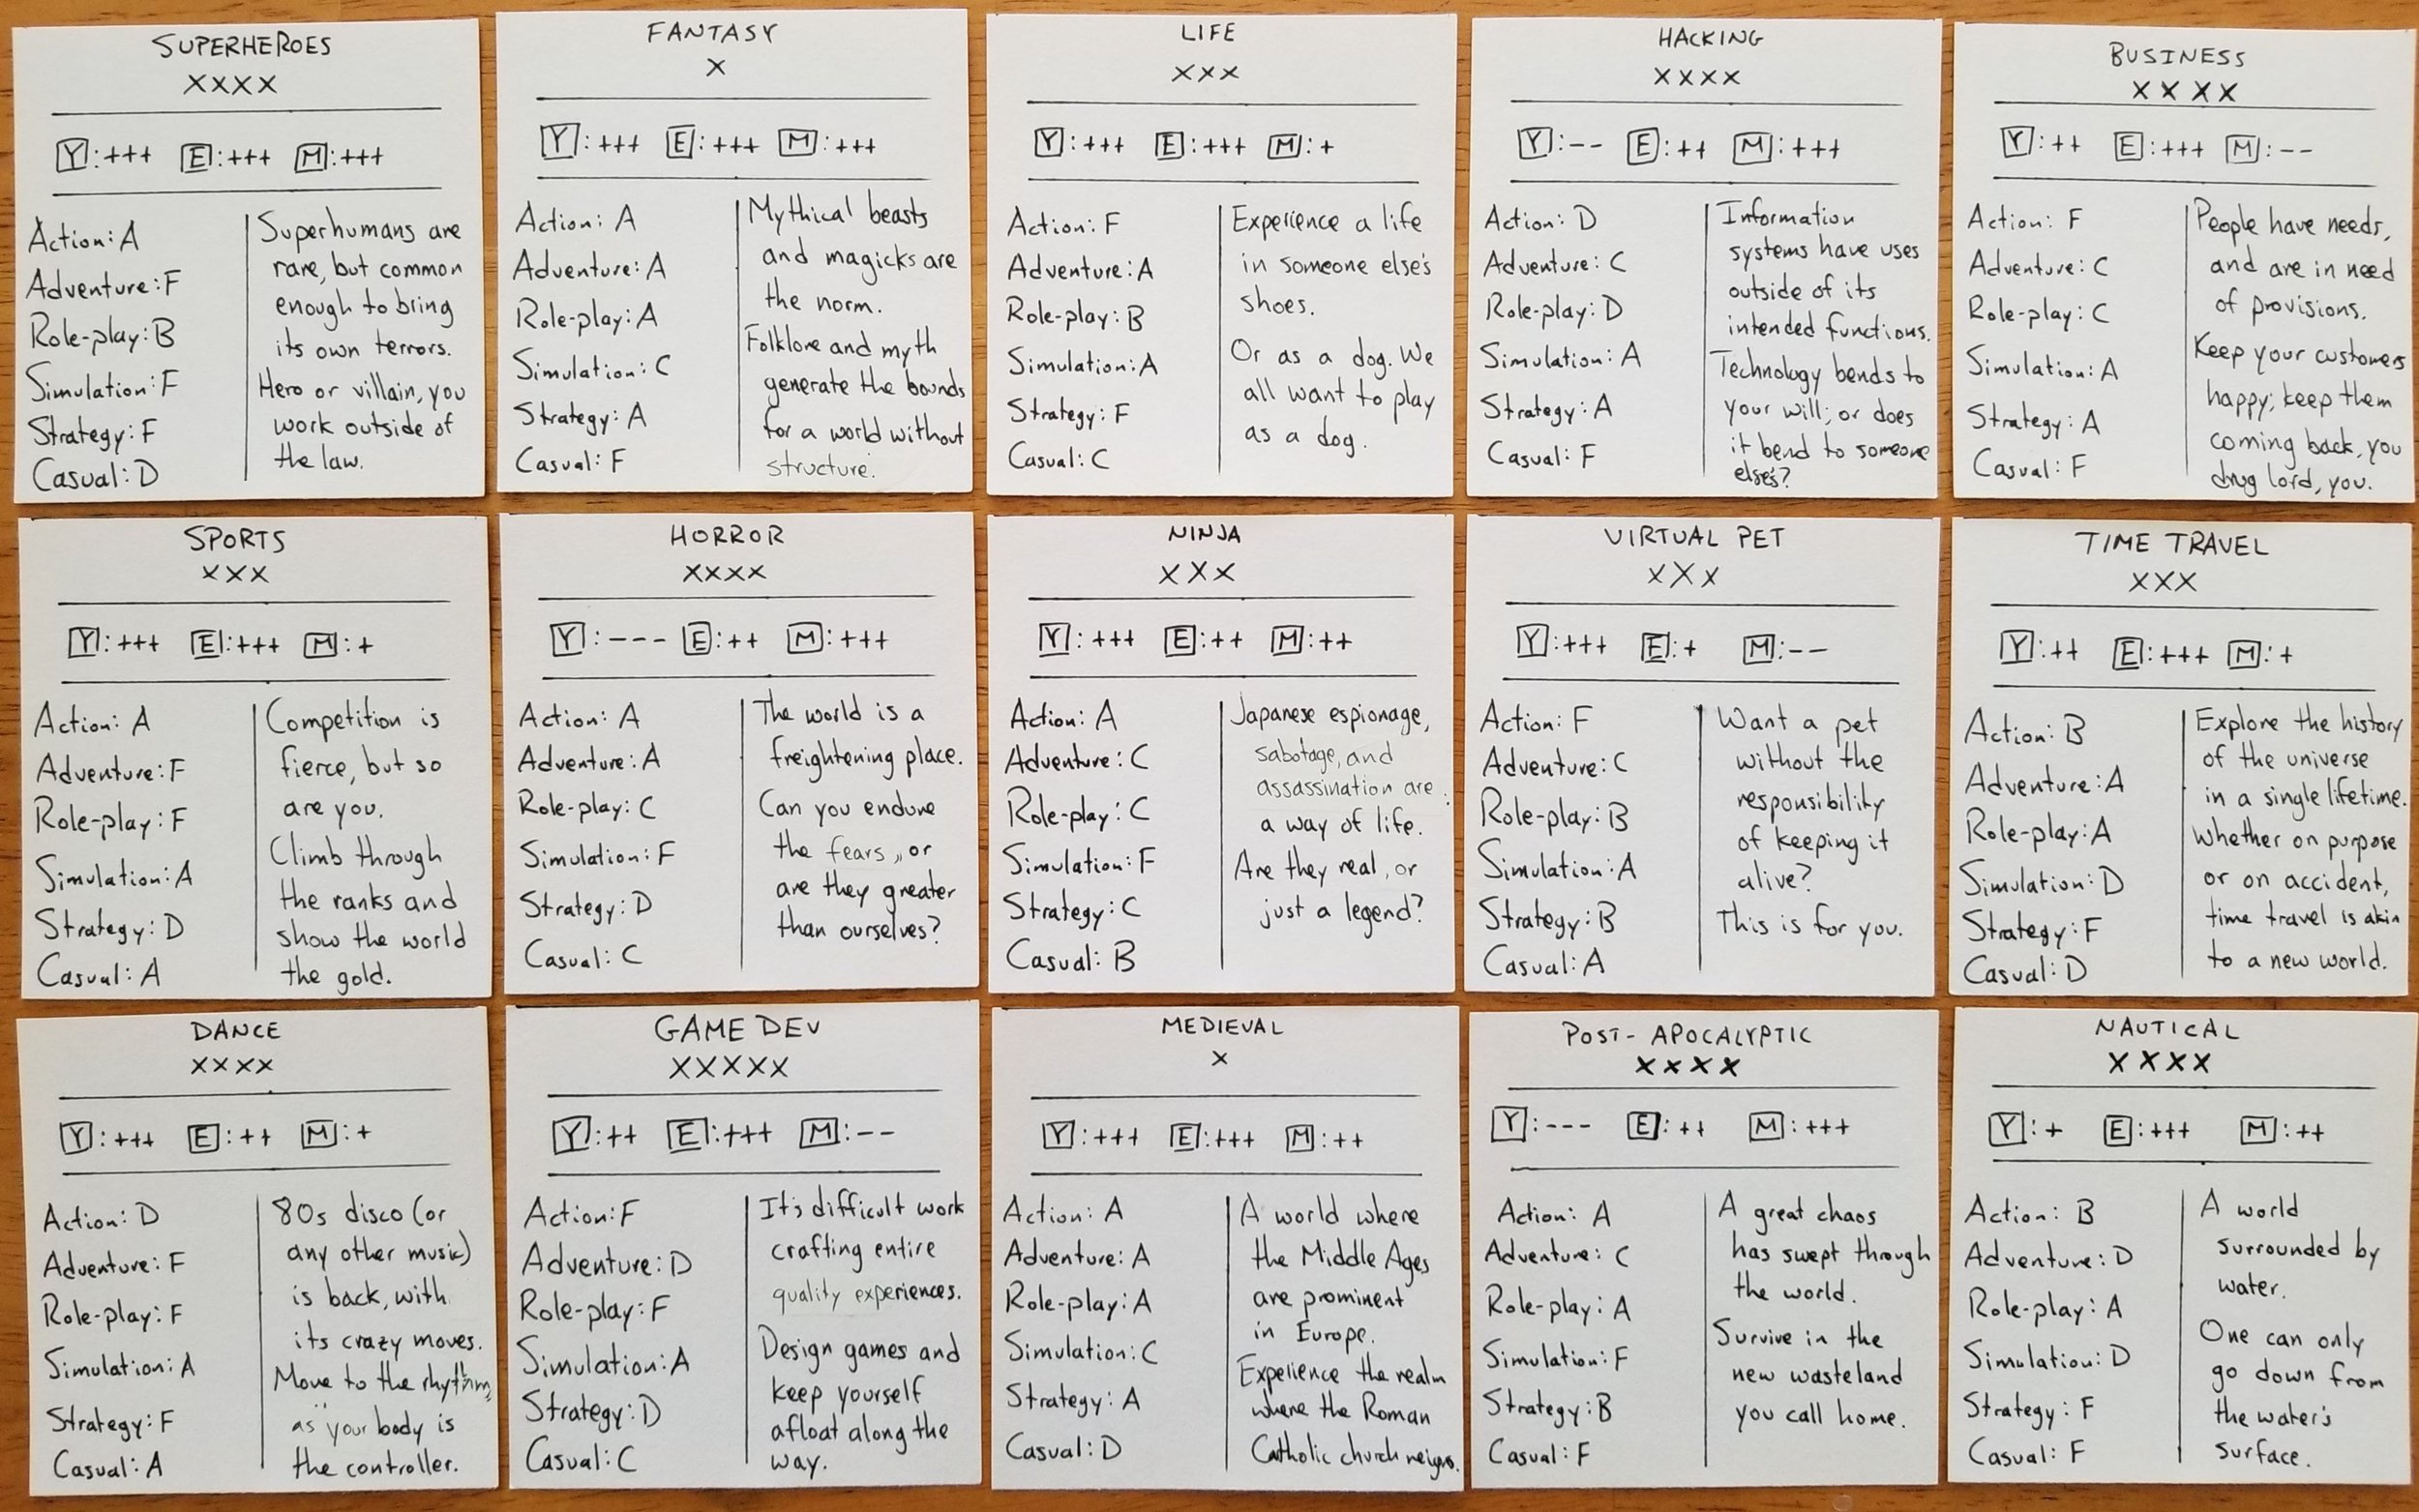 SUPERHEROES
XXXX
Y:+++ E:+++ M:+++
Action: A
Adventure: F
Role-play: B
Simulation: F
Strategy: F
Casual: D
Superhumans are
rare, but common
enough to bring
its own terrors.
Hero or villain, you
work outside of
the law.
FANTASY
X
Y:+++ E:+++ M:+++
Action: A
Adventure: A
Role-play: A
Simulation: C
Strategy: A
Casual: F
Mythical beasts
and magicks are
the norm.
Folklore and myth
generate the bounds
for a world without
structure.
LIFE
XXX
Y:+++ E:+++ M:+
Action: F
Adventure: A
Role-play: B
Simulation: A
Strategy: F
Casual: C
Experience a life
in someone else's
shoes.
Or as a dog. We
all want to play
as a dog.
HACKING
XXXX
Y:-- E:++ M:+++
Action: D
Adventure: C
Role-play: D
Simulation: A
Strategy: A
Casual: F
Information
systems have uses
outside of its
intended functions.
Technology bends to
your will; or does
it bend to someone
else's?
BUSINESS
XXXX
Y:++ E:+++ M:--
Action: F
Adventure: C
Role-play: C
Simulation: A
Strategy: A
Casual: F
People have needs,
and are in need
of provisions.
Keep your customers
happy; keep them
coming back, you
drug lord, you.
SPORTS
XXX
Y:+++ E:+++ M:+
Action: A
Adventure: F
Role-play: F
Simulation: A
Strategy: D
Casual: A
Competition is
fierce, but so
are you.
Climb through
the ranks and
show the world
the gold.
HORROR
XXXX
Y:--- E:++ M:+++
Action: A
Adventure: A
Role-play: C
Simulation: F
Strategy: D
Casual: C
The world is a
freightening place.
Can you endure
the fears, or
are they greater
than ourselves?
NINJA
XXX
Y:+++ E:++ M:++
Action: A
Adventure: C
Role-play: C
Simulation: F
Strategy: C
Casual: B
Japanese espionage,
sabotage, and
assassination are
a way of life.
Are they real, or
just a legend?
VIRTUAL PET
XXX
Y:+++ E:+ M:--
Action: F
Adventure: C
Role-play: B
Simulation: A
Strategy: B
Casual: A
Want a pet
without the
responsibility
of keeping it
alive?
This is for you.
TIME TRAVEL
XXX
Y:++ E:+++ M:+
Action: B
Adventure: A
Role-play: A
Simulation: D
Strategy: F
Casual: D
Explore the history
of the universe
in a single lifetime.
Whether on purpose
or on accident,
time travel is akin
to a new world.
DANCE
XXXX
Y:+++ E:++ M:+
Action: D
Adventure: F
Role-play: F
Simulation: A
Strategy: F
Casual: A
80s disco (or
any other music)
is back, with
its crazy moves.
Move to the rhythm,
as your body is
the controller.
GAME DEV
XXXXX
Y:++ E:+++ M:--
Action: F
Adventure: D
Role-play: F
Simulation: A
Strategy: D
Casual: C
It's difficult work
crafting entire
quality experiences.
Design games and
keep yourself
afloat along the
way.
MEDIEVAL
X
Y:+++ E:+++ M:++
Action: A
Adventure: A
Role-play: A
Simulation: C
Strategy: A
Casual: D
A world where
the Middle Ages
are prominent
in Europe.
Experience the realm
where the Roman
Catholic church reigns.
POST-APOCALYPTIC
XXXX
Y:--- E:++ M:+++
Action: A
Adventure: C
Role-play: A
Simulation: F
Strategy: B
Casual: F
A great chaos
has swept through
the world.
Survive in the
new wasteland
you call home.
NAUTICAL
XXXX
Y:+ E:+++ M:++
Action: B
Adventure: D
Role-play: A
Simulation: D
Strategy: F
Casual: F
A world
surrounded by
water.
One can only
go down from
the water's
surface.